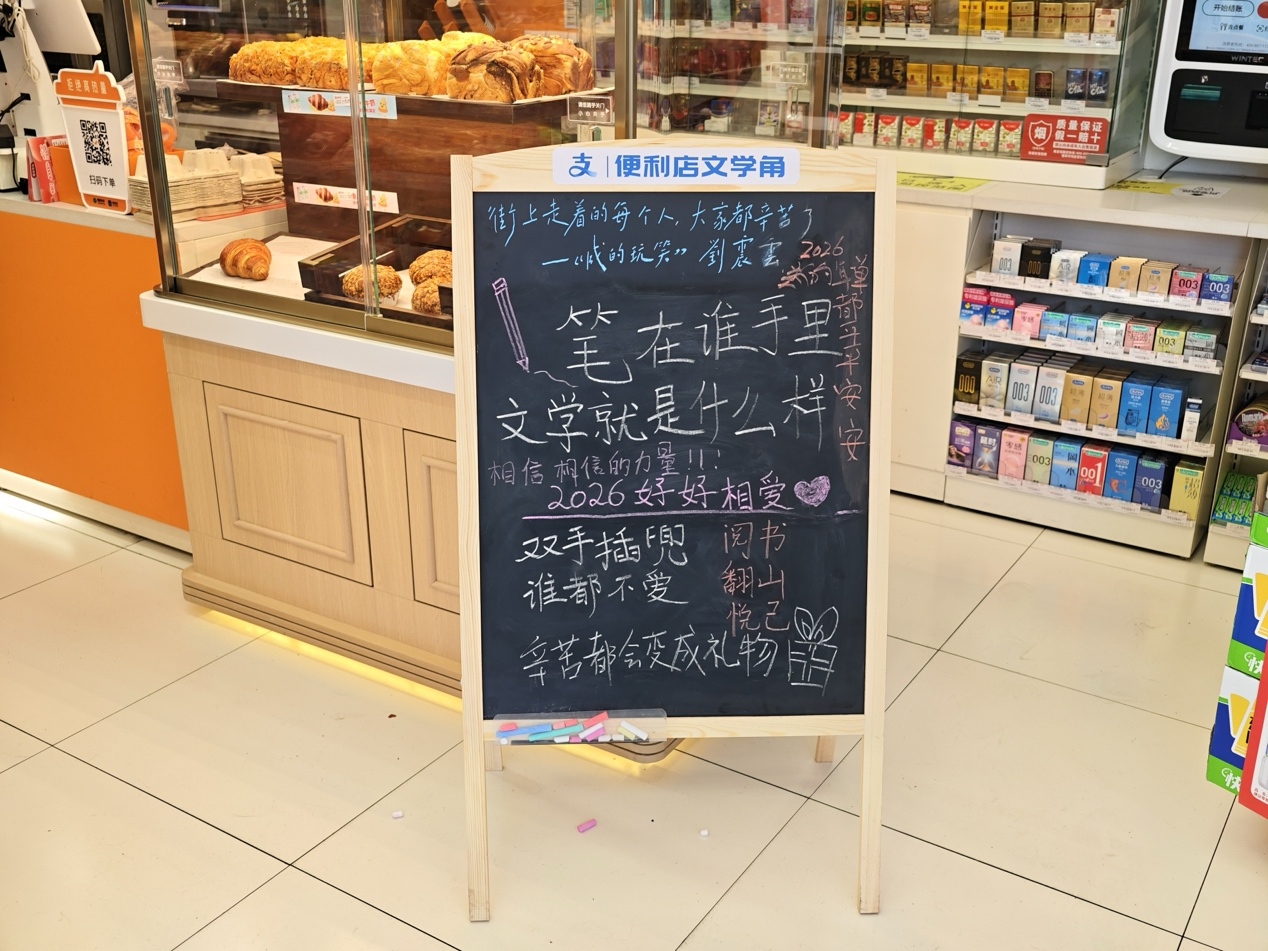 支 | 便利店文学角
街上走着的每个人，大家都辛苦了
—《咸的玩笑》 劉震雲
2026
都平平安安
笔在谁手里
文学就是什么样
相信相信的力量!!!
2026好好相爱
双手插兜
谁都不爱
阅书
翻山
悦己
辛苦都会变成礼物
拒绝高热量
扫码下单
烟
质量保证
假一赔十
开始结账
WINTEC
003
003
003
001
003
AiR